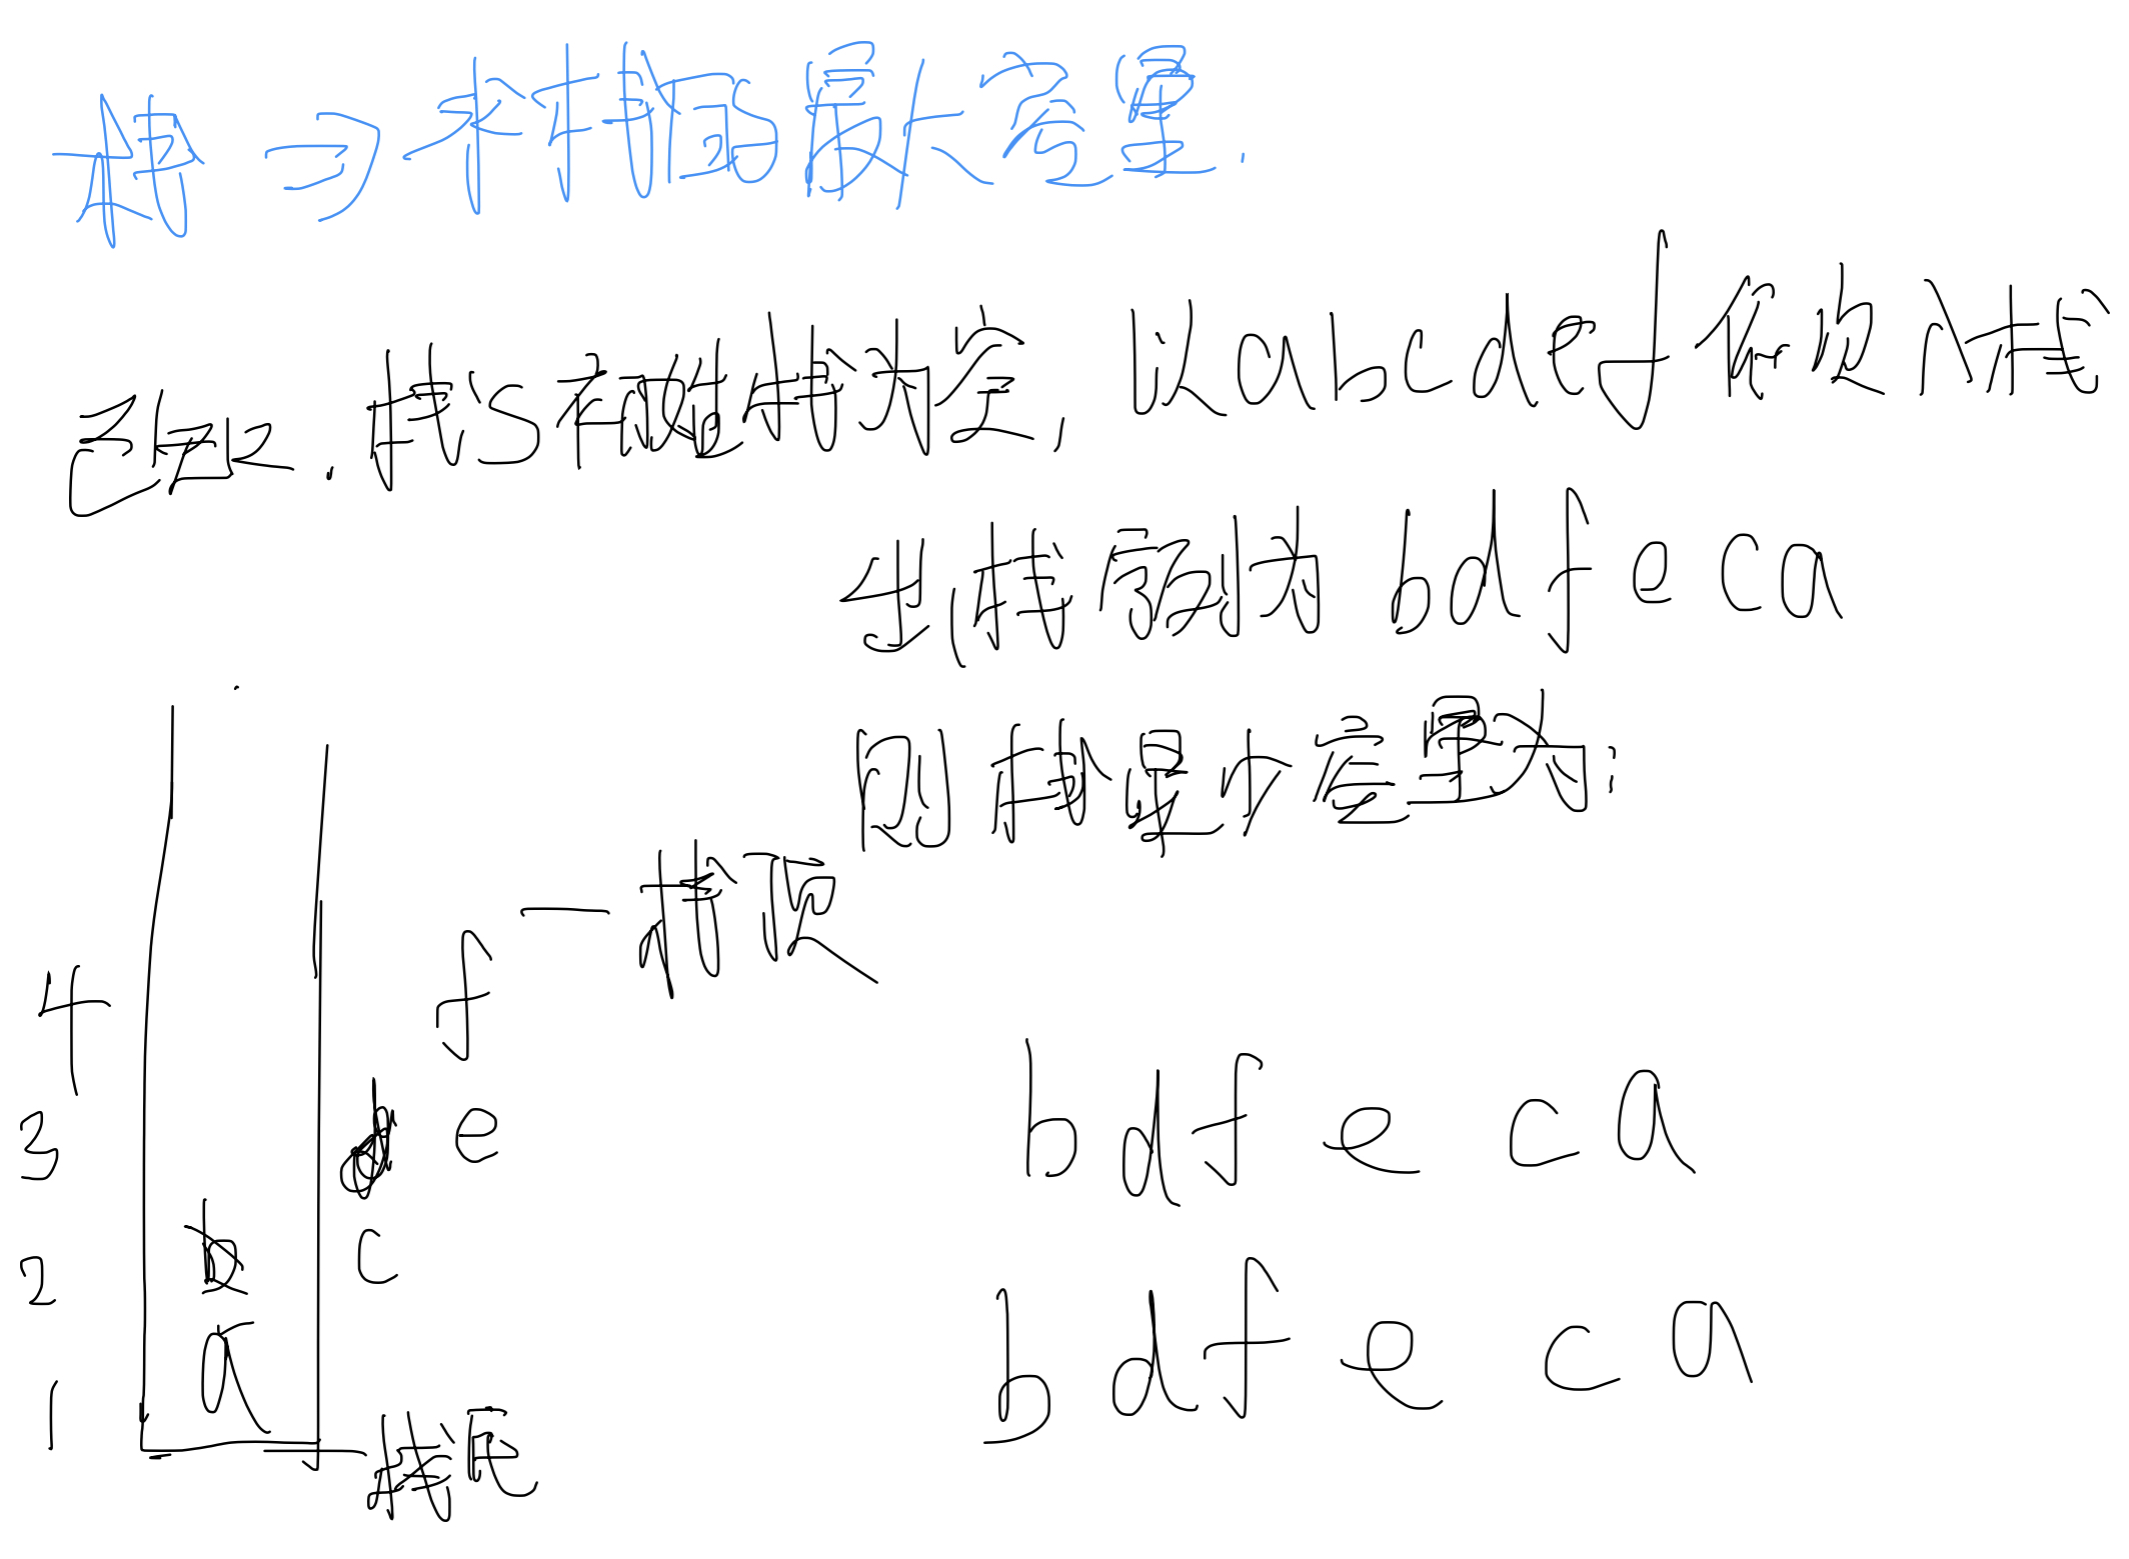 栈 → 求栈的最大容量.
已知. 栈S初始栈为空, 以abcdef依次入栈
出栈序列为 bdfeca
则栈最少容量为:
f — 栈顶
4
3 d e
b d f e c a
2 b c
b d f e c a
1 a
栈底